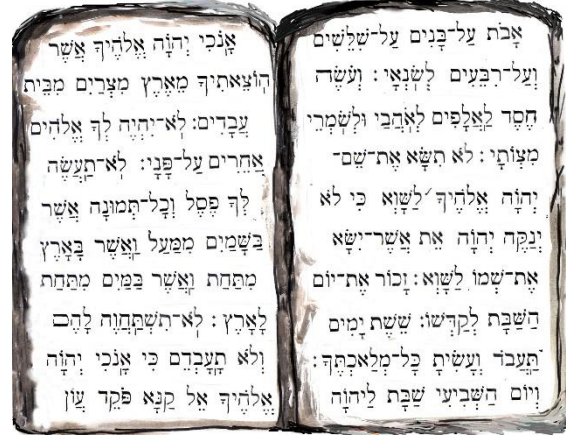 אָנֹכִי יְהוָֹה אֱלֹהֶיךָ אֲשֶׁר
הוֹצֵאתִיךָ מֵאֶרֶץ מִצְרַיִם מִבֵּית
עֲבָדִים: לֹא־יִהְיֶה לְךָ אֱלֹהִים
אֲחֵרִים עַל־פָּנָי: לֹא־תַעֲשֶׂה
לְךָ פֶסֶל וְכָל־תְּמוּנָה אֲשֶׁר
בַּשָּׁמַיִם מִמַּעַל וַאֲשֶׁר בָּאָרֶץ
מִתָּחַת וַאֲשֶׁר בַּמַּיִם מִתַּחַת
לָאָרֶץ: לֹא־תִשְׁתַּחֲוֶה לָהֶם
וְלֹא תָעָבְדֵם כִּי אָנֹכִי יְהוָֹה
אֱלֹהֶיךָ אֵל קַנָּא פֹּקֵד עֲוֹן
אָבֹת עַל־בָּנִים עַל־שִׁלֵּשִׁים
וְעַל־רִבֵּעִים לְשׂנְאָי: וְעֹשֶׂה
חֶסֶד לַאֲלָפִים לְאֹהֲבַי וּלְשֹׁמְרֵי
מִצְוֹתָי: לֹא תִשָּׂא אֶת־שֵׁם־
יְהוָֹה אֱלֹהֶיךָ לַשָּׁוְא כִּי לֹא
יְנַקֶּה יְהוָֹה אֵת אֲשֶׁר־יִשָּׂא
אֶת־שְׁמוֹ לַשָּׁוְא: זָכוֹר אֶת־יוֹם
הַשַּׁבָּת לְקַדְּשׁוֹ: שֵׁשֶׁת יָמִים
תַּעֲבוֹד וְעָשִׂיתָ כָּל־מְלַאכְתֶּךָ:
וְיוֹם הַשְּׁבִיעִי שַׁבָּת לַיהוָֹה